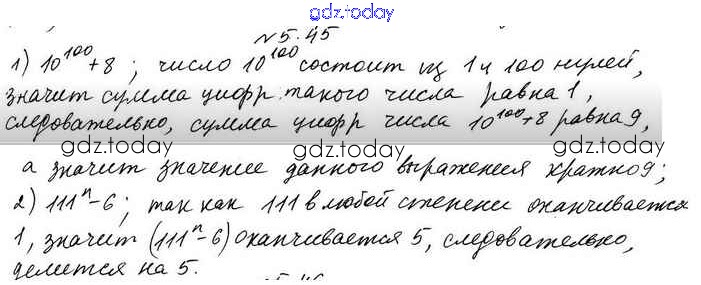 gdz.today
№5.45
1) 10¹⁰⁰+8; число 10¹⁰⁰ состоит из 1 и 100 нулей,
значит сумма цифр такого числа равна 1,
следовательно, сумма цифр числа 10¹⁰⁰+8 равна 9,
gdz.today gdz.today
а значит значение данного выражения кратно 9;
2) 111ⁿ-6; так как 111 в любой степени оканчивается
1, значит (111ⁿ-6) оканчивается 5, следовательно,
gdz.today gdz.today
делится на 5.
gdz.today